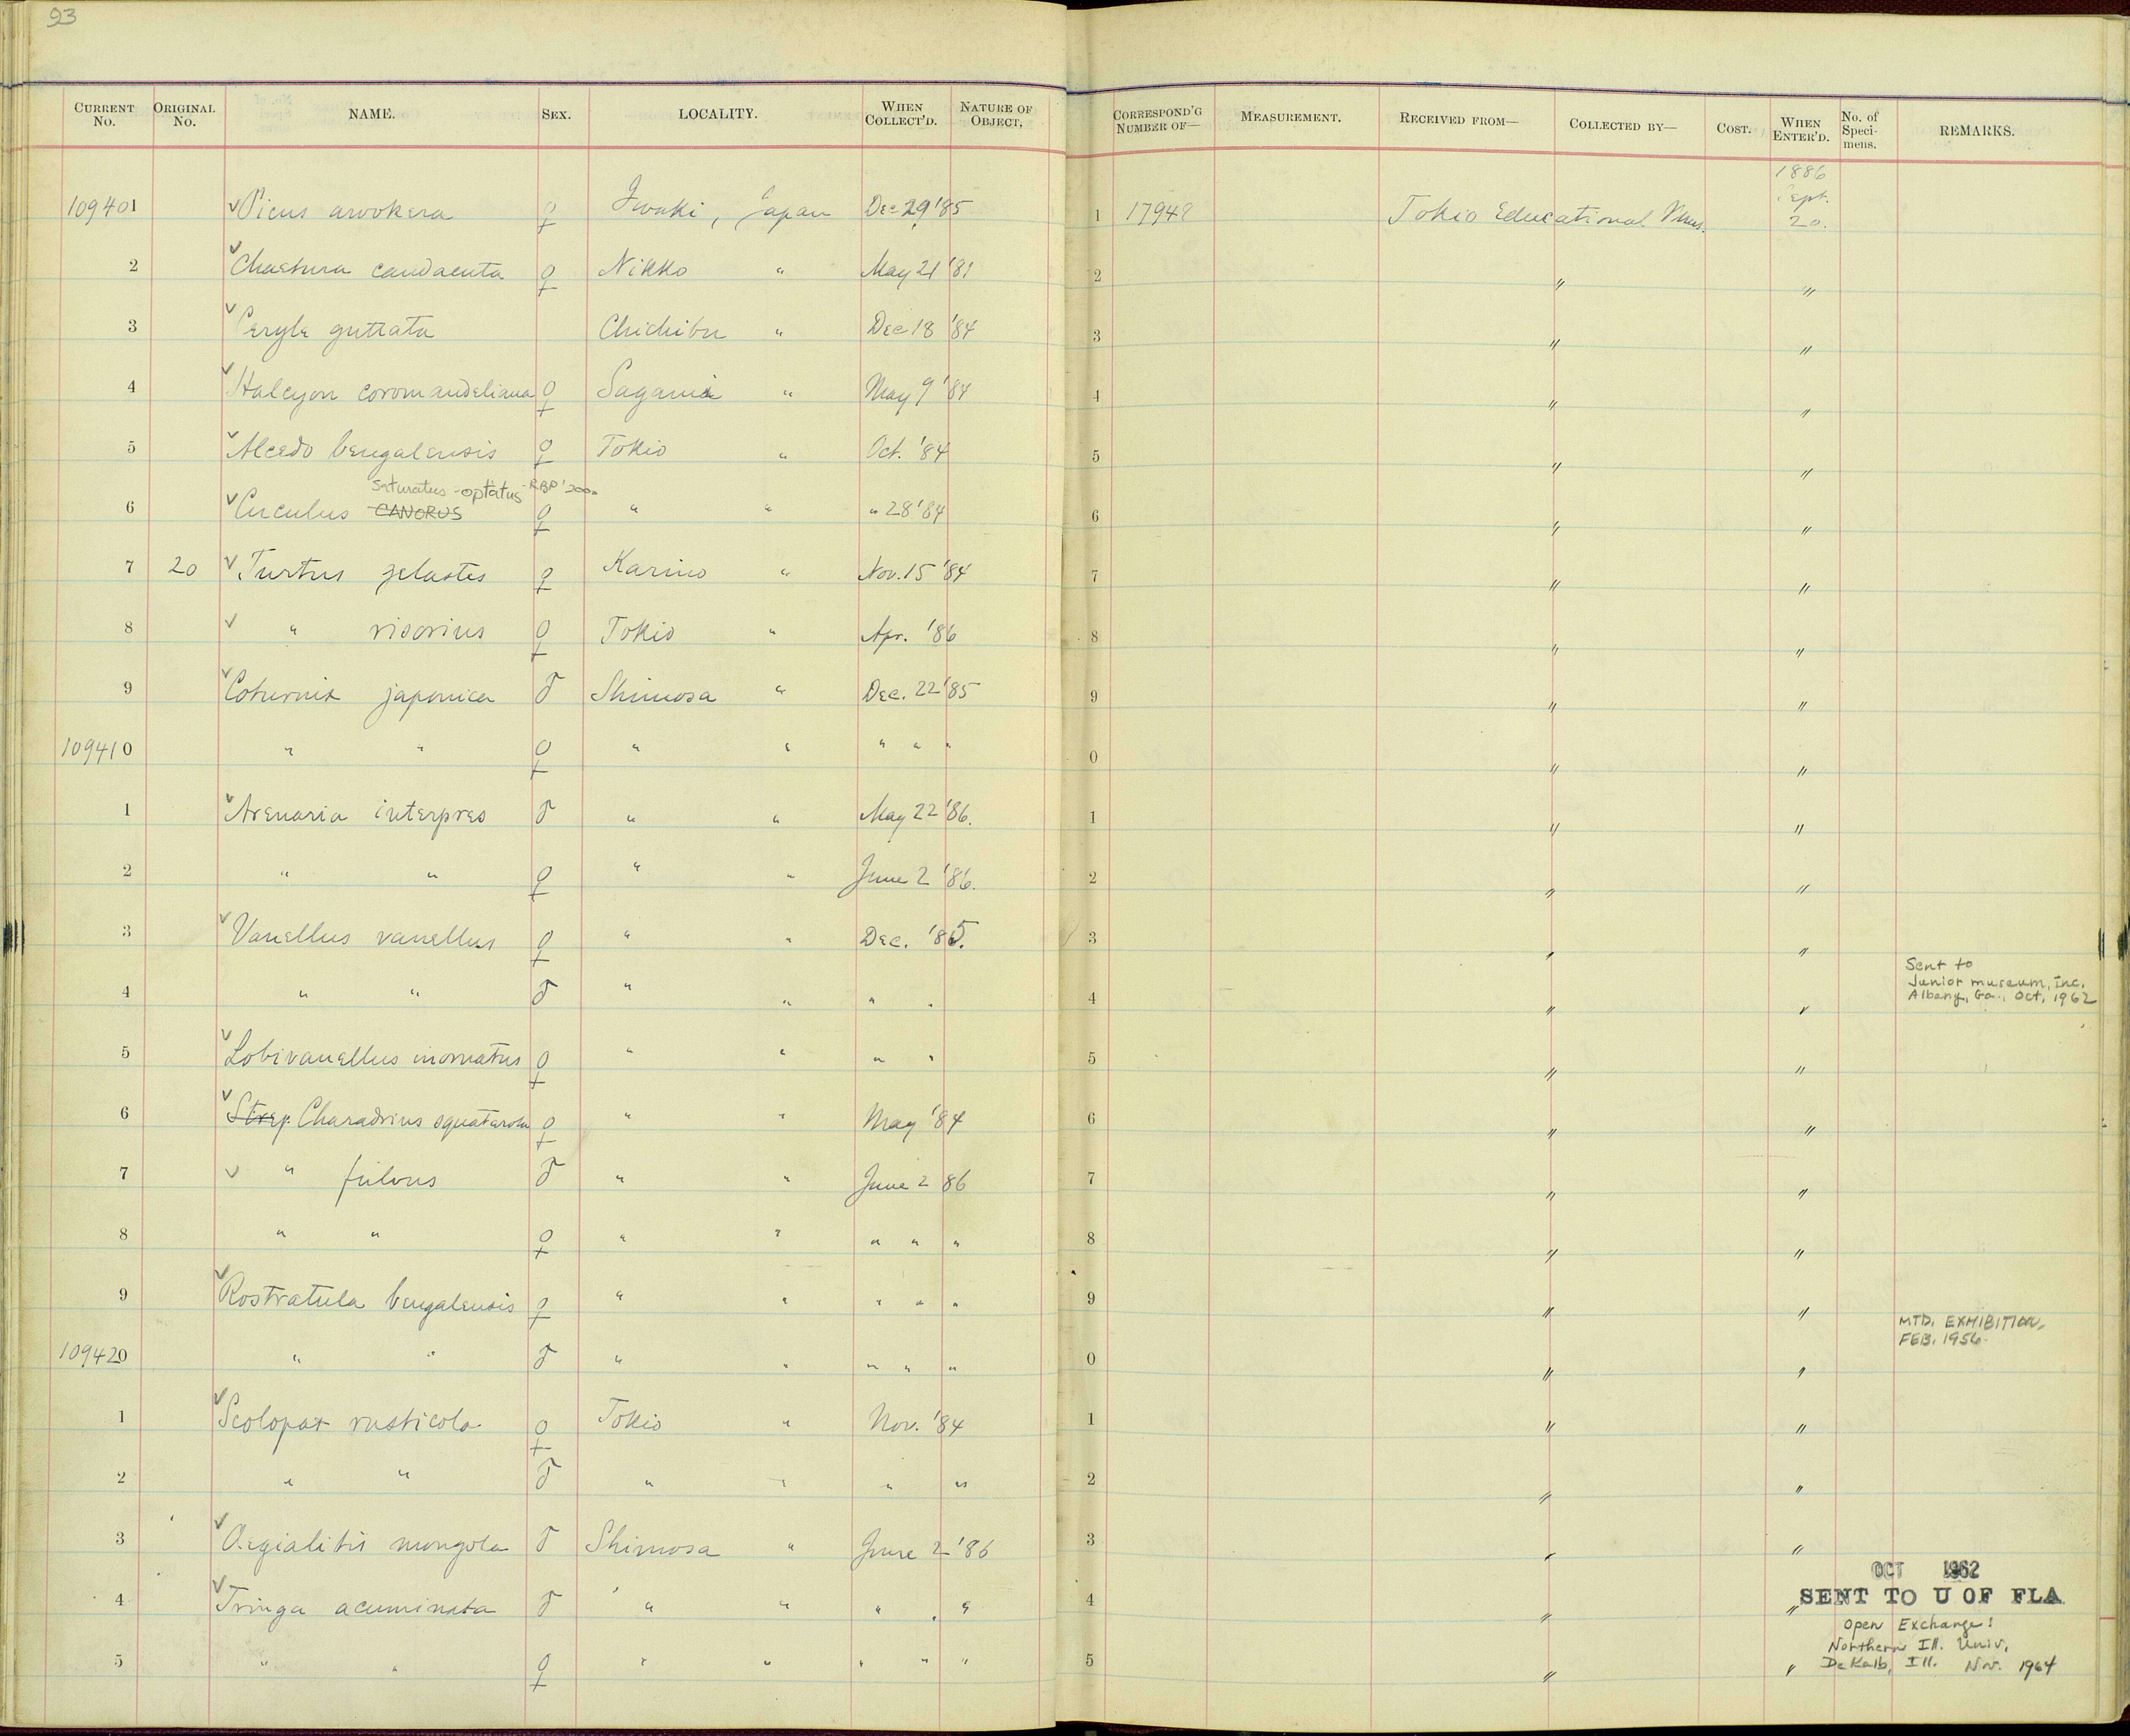 93
CURRENT No. ORIGINAL No. NAME. SEX. LOCALITY. WHEN COLLECT'D. NATURE OF OBJECT. CORRESPOND'G NUMBER OF— MEASUREMENT. RECEIVED FROM— COLLECTED BY— COST. WHEN ENTER'D. No. of Speci-mens. REMARKS.
109401 ✓ Picus awokera ♀ Iwaki, Japan Dec 29 '85 1 Tokio Educational Mus. 1886 Sept. 20.
2 ✓ Chaetura caudacuta ♀ Nikko " May 21 '81 2 " "
3 ✓ Ceryle guttata Chichibu " Dec 18 '84 3 " "
4 ✓ Halcyon coromandeliana ♀ Sagami " May 9 '84 4 " "
5 ✓ Alcedo bengalensis ♀ Tokio " Oct. '84 5 " "
saturatus - optatus - RBP
6 ✓ Cuculus CANORUS ♀ " " " 28 '84 6 " "
7 20 ✓ Turtus gelastes ♀ Karino " Nov. 15 '84 7 " "
8 ✓ " risorius ♀ Tokio " Apr. '86 8 " "
9 ✓ Coturnix japonica ♂ Shimosa " Dec. 22 '85 9 " "
109410 " " ♀ " " " " " 0 " "
1 ✓ Arenaria interpres ♂ " " May 22 '86. 1 " "
2 " " ♀ " " June 2 '86. 2 " "
3 ✓ Vanellus vanellus ♀ " " Dec. '85. 3 " "
4 " " ♂ " " " " 4 " " Sent to
Junior museum, Inc.
Albany, Ga., Oct, 1962
5 ✓ Lobivanellus inornatus ♀ " " " " 5 " "
6 ✓ Strep. Charadrius squatarola ♀ " " May '84 6 " "
7 ✓ " fulvus ♂ " " June 2 86 7 " "
8 " " ♀ " " " " " 8 " "
9 ✓ Rostratula bengalensis ♀ " " " " " 9 " "
MTD. EXHIBITION,
FEB. 1956
109420 " " ♂ " " " " " 0 " "
1 ✓ Scolopax rusticola ♀ Tokio " Nov. '84 1 " "
2 " " ♂ " " " " 2 " "
3 ✓ Aegialitis mongola ♂ Shimosa " June 2 '86 3 " "
OCT 1962
4 ✓ Tringa acuminata ♂ " " " " 4 " " SENT TO U OF FLA
Open Exchange:
Northern Ill. Univ,
5 " " ♀ " " " " " 5 " " DeKalb, Ill. Nov. 1964